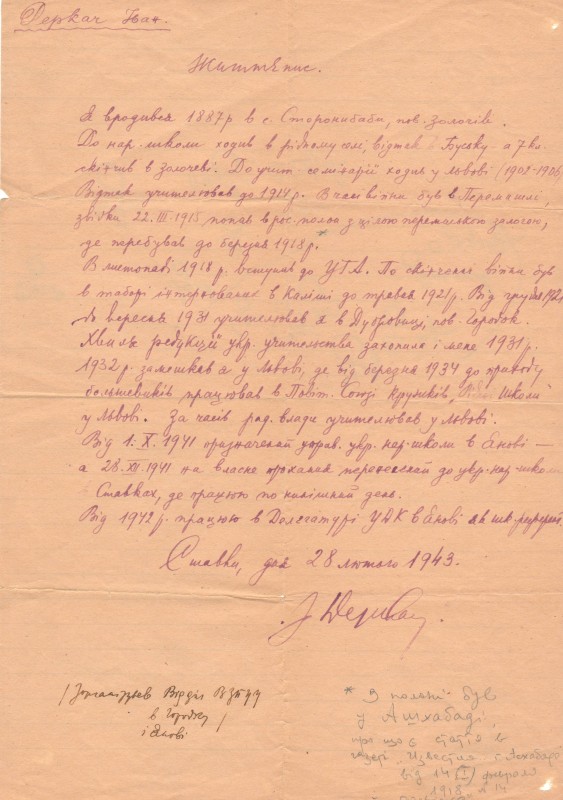 Деркач Іван.
Життєпис.
Я вродився 1887р в с. Сторонибаби, пов. золочів.
До нар. школи ходив в рідному селі, відтак Буську а 7 кл.
скінчив в золочеві. До учит. семінарії ходив у Львові (1902-1906)
Відтак учителював до 1914 р. В часі війни був в Перемишлі,
звідки 22. III. 1915 попав в рос. полон з цілою перемиською залогою,
де перебував до березня 1918 р.
В листопаді 1918 р. вступив до УГА. По скінченні війни був
в таборі інтернованих в Каліші до травня 1921 р. Від грудня 1921
до вересня 1931 учителював я в Дубровиці, пов. Городок.
Хвиля редукції укр. учительства захопила і мене 1931 р.
1932 р. замешкав я у Львові, де від березня 1934 до приходу
большевиків працював в Повіт. Союзі Кружків, Рідної Школи
у Львові. За часів рад. влади учителював у Львові.
Від 1. X. 1941 призначений управ. укр. нар. школи в Янові —
а 28. XII. 1941 на власне прохання перенесений до укр. нар. школи
Ставках, де працюю по нинішний день.
Від 1942 р. працюю в Делегатурі УДК в Янові як шк. референт.
Ставки, дня 28 лютого 1943.
І Деркач.
/ Зорганізував Відділ
в Городку
і Янові /
* З полоні був
у Ашхабаді,
про що є стаття в
газеті „Известия с. Асхабад
від 14 (I) февраля
1918 № 14